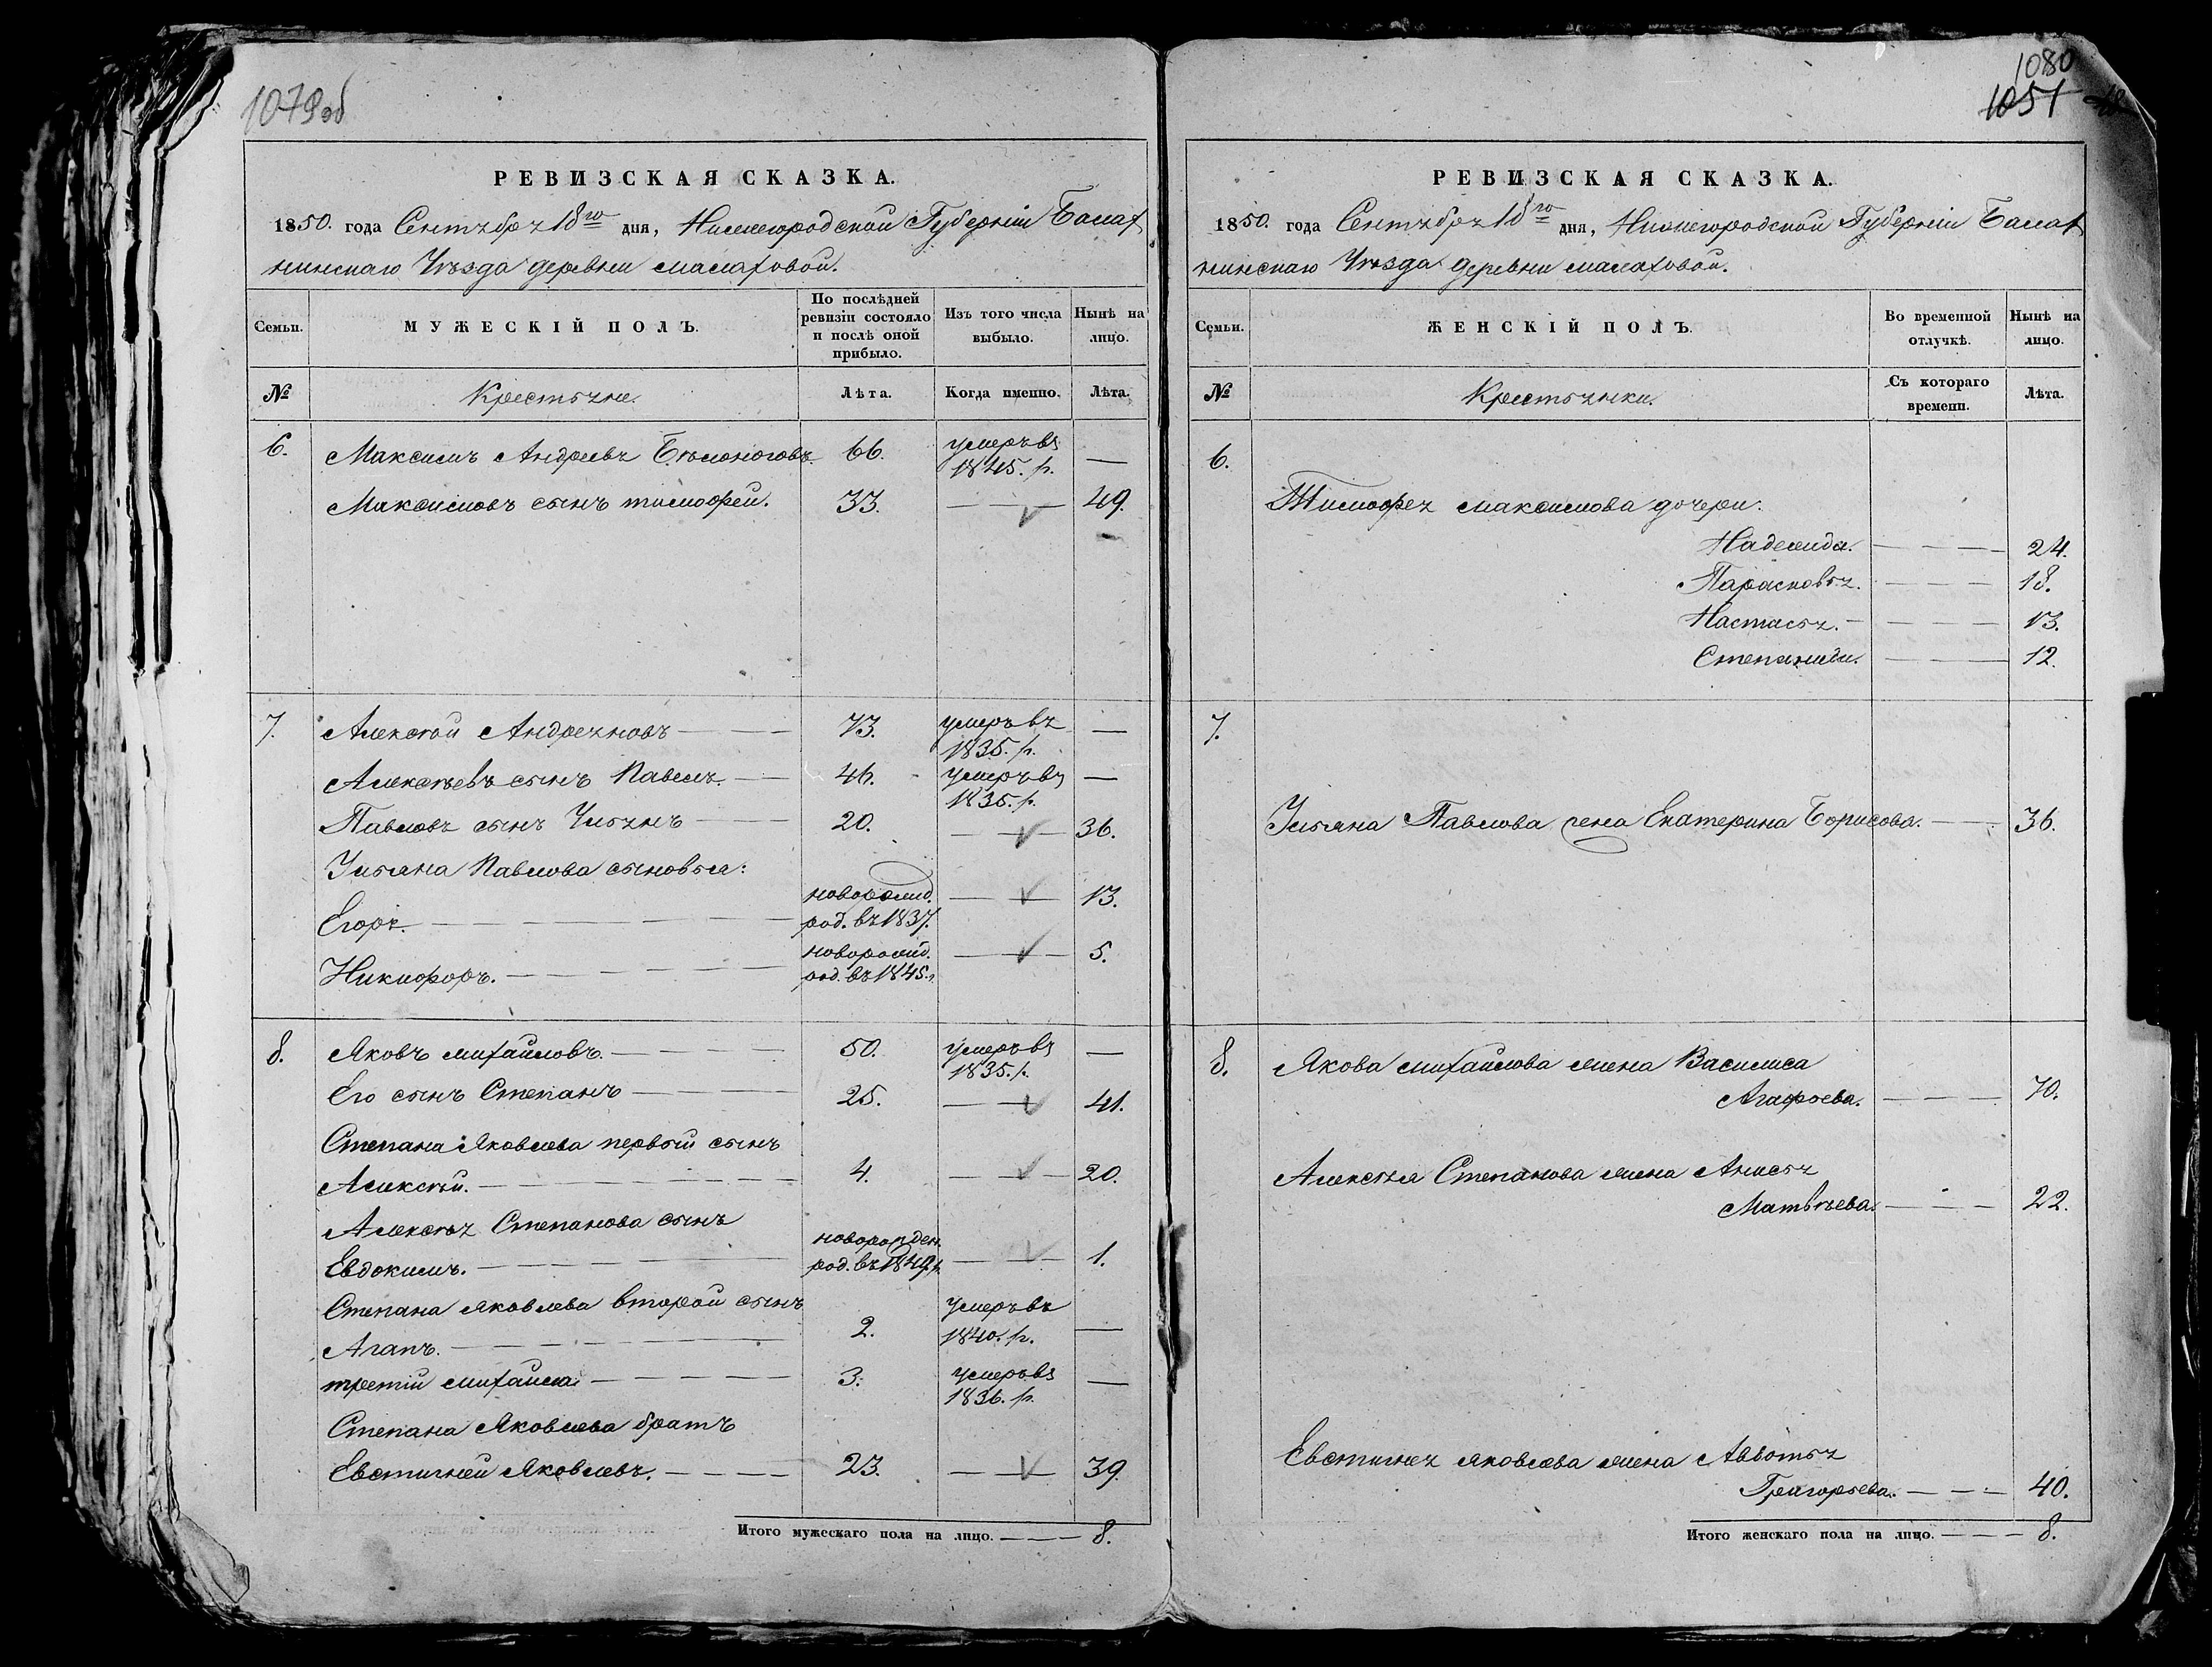 1079 об
РЕВИЗСКАЯ СКАЗКА.
1850. года Сентября 18го дня, Нижегородской Губерніи Балах
нинскаго Уѣзда деревни Малаховой.
Семьи. МУЖЕСКІЙ ПОЛЪ. По послѣдней ревизіи состояло и послѣ оной прибыло. Изъ того числа выбыло. Нынѣ на лицо.
№ Крестьяне. Лѣта. Когда именно. Лѣта.
6. Максимъ Андреевъ Бѣлоноговъ. 66. умеръ въ 1845. г. —
Максимовъ сынъ Тимофей. 33. — 49.
7. Алексѣй Андреяновъ 73. умеръ въ 1835. г. —
Алексѣевъ сынъ Павелъ. 46. умеръ въ 1835. г. —
Павловъ сынъ Ульянъ 20. — 36.
Ульяна Павлова сыновья:
Егоръ. новорожд. род. въ 1837. — 13.
Никифоръ. новорожд. род. въ 1845. г. — 5.
8. Яковъ Михайловъ. 50. умеръ въ 1835. г. —
Его сынъ Степанъ 25. — 41.
Степана Яковлева первый сынъ
Алексѣй. 4. — 20.
Алексѣя Степанова сынъ
Евдокимъ. новорожден. род. въ 1849. г. — 1.
Степана Яковлева второй сынъ
Агапъ. 2. умеръ въ 1840. г. —
третій Михайла. 3. умеръ въ 1836. г. —
Степана Яковлева братъ
Евстигней Яковлевъ. 23. — 39.
Итого мужескаго пола на лицо. 8.
1080
1051
РЕВИЗСКАЯ СКАЗКА.
1850. года Сентября 18го дня, Нижегородской Губерніи Балах
нинскаго Уѣзда деревни Малаховой.
Семьи. ЖЕНСКІЙ ПОЛЪ. Во временной отлучкѣ. Нынѣ на лицо.
№ Крестьянки. Съ котораго времени. Лѣта.
6.
Тимофея Максимова дочери:
Надежда. — 24.
Парасковья. — 18.
Настасья. — 13.
Степанида. — 12.
7.
Ульяна Павлова жена Екатерина Борисова. — 36.
8. Якова Михайлова жена Василиса
Агафоева. — 70.
Алексѣя Степанова жена Анисья
Матвѣева. — 22.
Евстигнея Яковлева жена Авдотья
Григорьева. — 40.
Итого женскаго пола на лицо. 8.